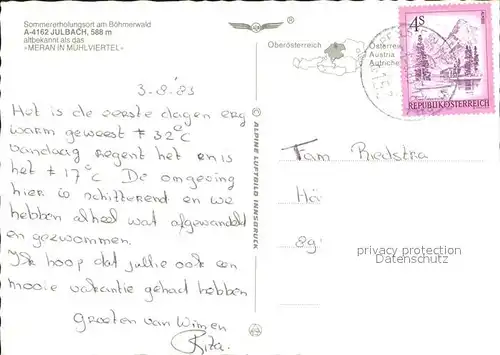 Sommererholungsort am Böhmerwald
A-4162 JULBACH, 588 m
altbekannt als das
»MERAN IN MÜHLVIERTEL«
3-8-83
Het is de eerste dagen erg
warm geweest ± 32°C
vandaag regent het en is
het ± 17°C De omgeving
hier is schitterend en we
hebben alheel wat afgewandeld
en gezwommen.
Ik hoop dat jullie ook een
mooie vakantie gehad hebben
Groeten van Wimen
Rita.
© ALPINE LUFTBILD INNSBRUCK
Oberösterreich
Österreich
Austria
Autriche
4S
REPUBLIK ÖSTERREICH
Fam Riedstra
Hä
89
privacy protection
Datenschutz